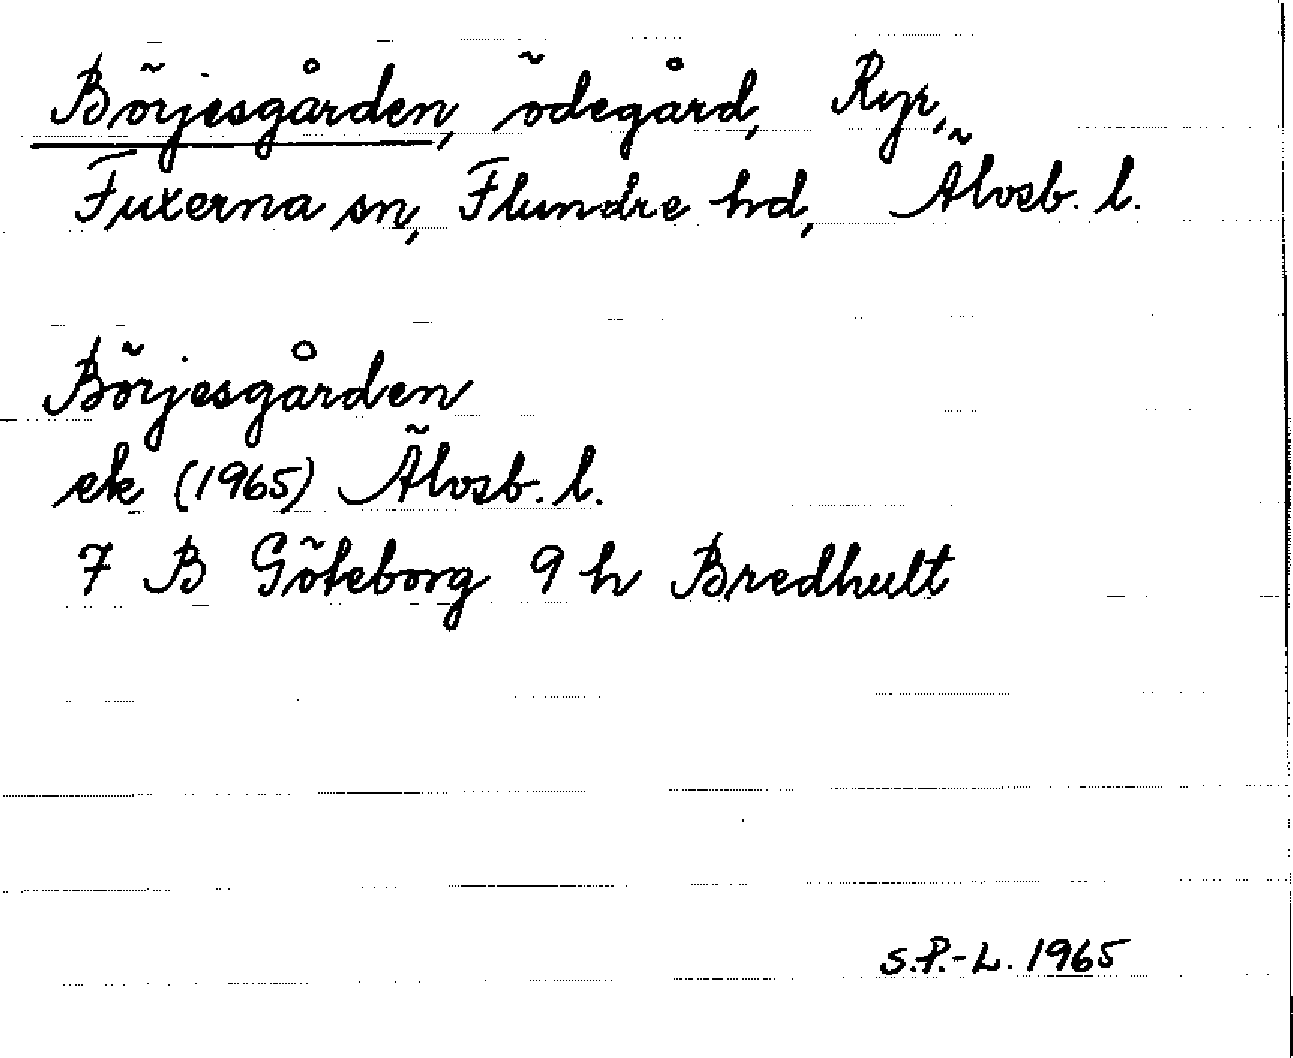 Börjesgården, ödegård, Ryr,
Fuxerna sn, Flundre hd, Älvsb. l.
Börjesgården
ek (1965) Älvsb. l.
7 B Göteborg 9 h Bredhult
S.P.-L. 1965